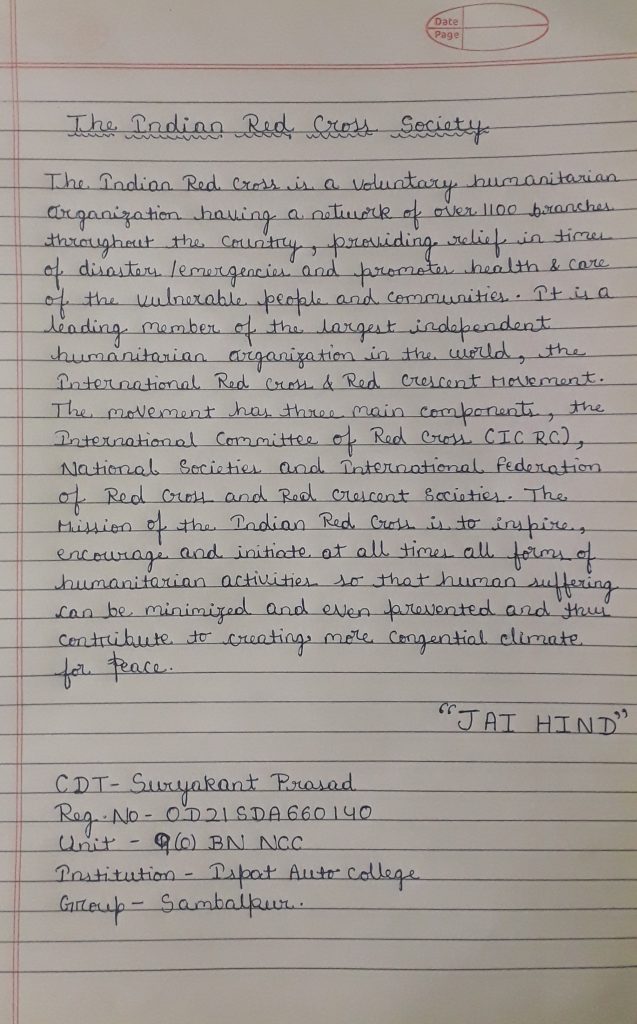 Date
Page
The Indian Red Cross Society
The Indian Red Cross is a voluntary humanitarian
organization having a network of over 1100 branches
throughout the country, providing relief in times
of disasters/emergencies and promotes health & care
of the vulnerable people and communities. It is a
leading member of the largest independent
humanitarian organization in the world, the
International Red Cross & Red Crescent Movement.
The movement has three main components, the
International Committee of Red Cross (ICRC),
National Societies and International Federation
of Red Cross and Red Crescent Societies. The
Mission of the Indian Red Cross is to inspire,
encourage and initiate at all times all forms of
humanitarian activities so that human suffering
can be minimized and even prevented and thus
contribute to creating more congential climate
for Peace.
"JAI HIND"
CDT- Suryakant Prasad
Reg. No - OD21SDA660140
Unit - 9(O) BN NCC
Institution - Ispat Auto College
Group - Sambalpur.